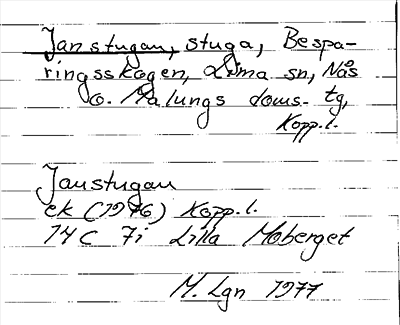 Janstugan, stuga, Bespa-
ringsskogen, Lima sn, Nås
o. Malungs doms. tg,
Kopp.l.
Janstugan
ek (1976) Kopp.l.
14C 7i Lilla Moberget
M. Lgn 1977